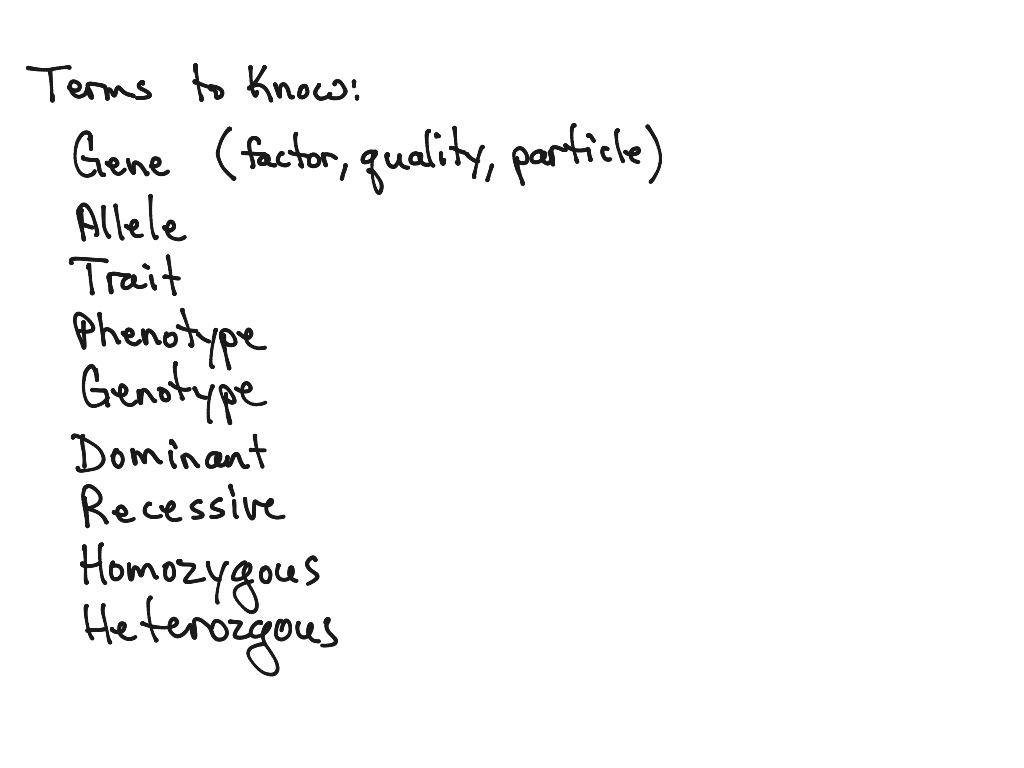 Terms to Know:
Gene (factor, quality, particle)
Allele
Trait
Phenotype
Genotype
Dominant
Recessive
Homozygous
Heterozgous